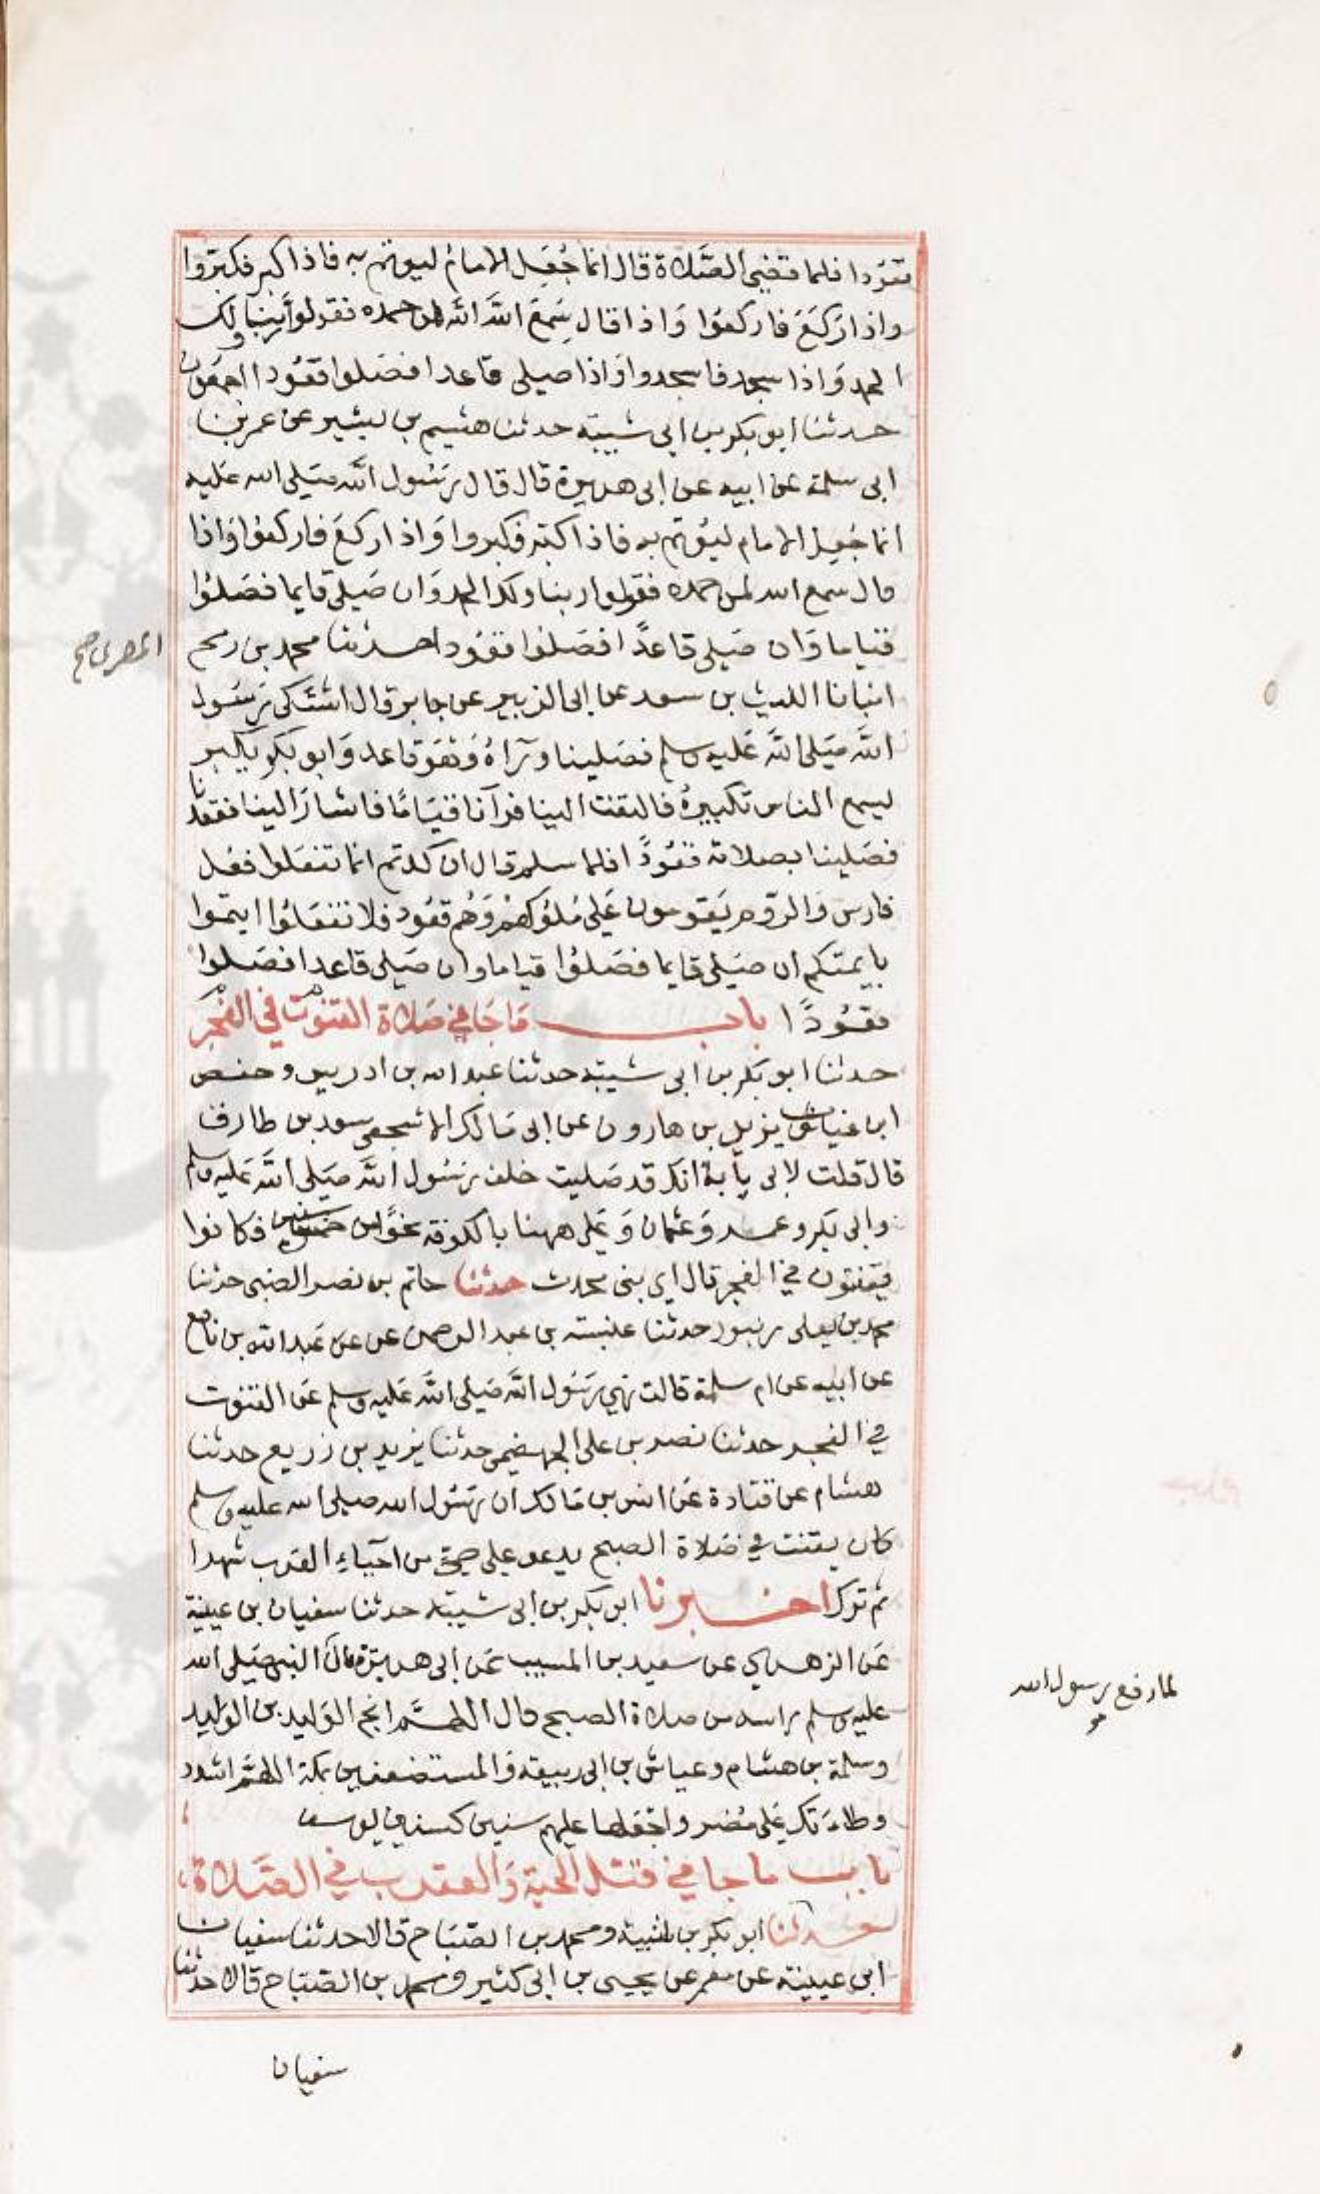 قعُودا فلما قضي الصَّلاة قال انما جُعِل الامامُ ليوتم به فاذا كبر فكبّروا
واذا ركَعَ فاركعوُا وَاذا قال سَمِعَ اللَّه لمن حمده فقولوا ربنا ولك
الحمد وَاذا سجد فاسجدوا وَاذا صلي قاعدا فصَلوا قعُودا اجمعون
حدثنا ابو بكر بن ابي شيبة حدثنا هشيم بن بشير عن عمر بن
ابي سلمة عن ابيه عن ابي هريرة قال قال رسُول اللَّه صَلى الله عَليه
انما جُعِل الامام ليُوتم به فاذا كبّر فكبروا وَاذا ركعَ فاركعوُا وَاذا
قال سمع الله لمن حمده فقولوا ربنا ولك الحمد وَان صَلي قايما فصَلوُا
قياما وَان صَلي قاعدًا فصَلوُا قعُودا حدثنا محمد بن رمح
المصري صح
انبانا الليث بن سعد عن ابي الزبير عن جابر قال اشتَكى رَسُول
اللَّه صَلى اللَّه عَليه وسلم فصَلينا ورَآهُ وَهوَ قاعد وَابو بكر يكبر
ليسمع الناس تكبيرهُ فالتفت الينا فرآنا قيَامًا فاشارَ الينا فقعدنا
فصَلينا بصلاته قعُودًا فلما سلم قال ان كدتم انما تفعَلوا فعل
فارس وَالروم يَقومون عَلى مُلوُكهمْ وَهُم قعُود فلا تفعَلوُا ايتموا
بايمتكم ان صَلى قايما فصَلوُا قياما وان صَلى قاعدا فصَلوا
قعُودًا باب مَا جَا في صَلاة القنوت في الفجر
حدثنا ابو بكر بن ابي شيبة حدثنا عبد الله بن ادريس وحفص
ابن غياث ويزيد بن هارون عن ابي مَالك الاشجعي سعد بن طارق
قال قلت لابي يا ابة انك قد صَليت خلف رسُول اللَّه صَلى اللَّه عَليه وسلم
وابي بكر وعمر وَعثمان وَعَلى ههنا بالكوفة نحوًا من خمس سنين فكانوا
يقنتون في الفجر قال اي بني محدث حدثنا حاتم بن نصر الضبي حدثنا
محمد بن يعلى زنبور حدثنا عنبسة بن عبد الرحمن عن عن عَبد الله بن نافع
عن ابيه عن ام سلمة قالت نهي رسُول اللَّه صَلى اللَّه عَليه وسلم عَن القنوت
في الفجر حدثنا نصر بن علي الجهضمي حدثنا يزيد بن زريع حدثنا
هشام عن قتادة عَن انس بن مَالك ان رسُول الله صلى الله عليه وسلم
كان يقنت في صَلاة الصبح يدعو على حي من احيَاءِ العَرب شهرا
ثم ترك اخبرنا ابو بكر بن ابي شيبة حدثنا سفيان بن عيينة
عَن الزهري عن سعيد بن المسيب عَن ابي هريرَة قال النبي صَلى الله
لما رفع رسول الله
عليه وسلم راسه من صلاة الصبح قال اللهمَّ انج الوَليد بن الوَليد
وسلمة بن هشام وعياش بن ابي ربيعة وَالمستضعفين بمكة اللهمَّ اشدد
وطاءَتك عَلى مُضر واجْعَلها عليهم سنين كسني يوسف
باب ما جا في قتل الحية وَالعقرب في الصَّلاة
حدثنا ابو بكر بن شيبة ومحمد بن الصَّبَاح قالا حدثنا سفيان
ابن عيينة عن معمر عن يحيى بن ابي كثير ومحمد بن الصَّباح قالا حدثنا
سفيان